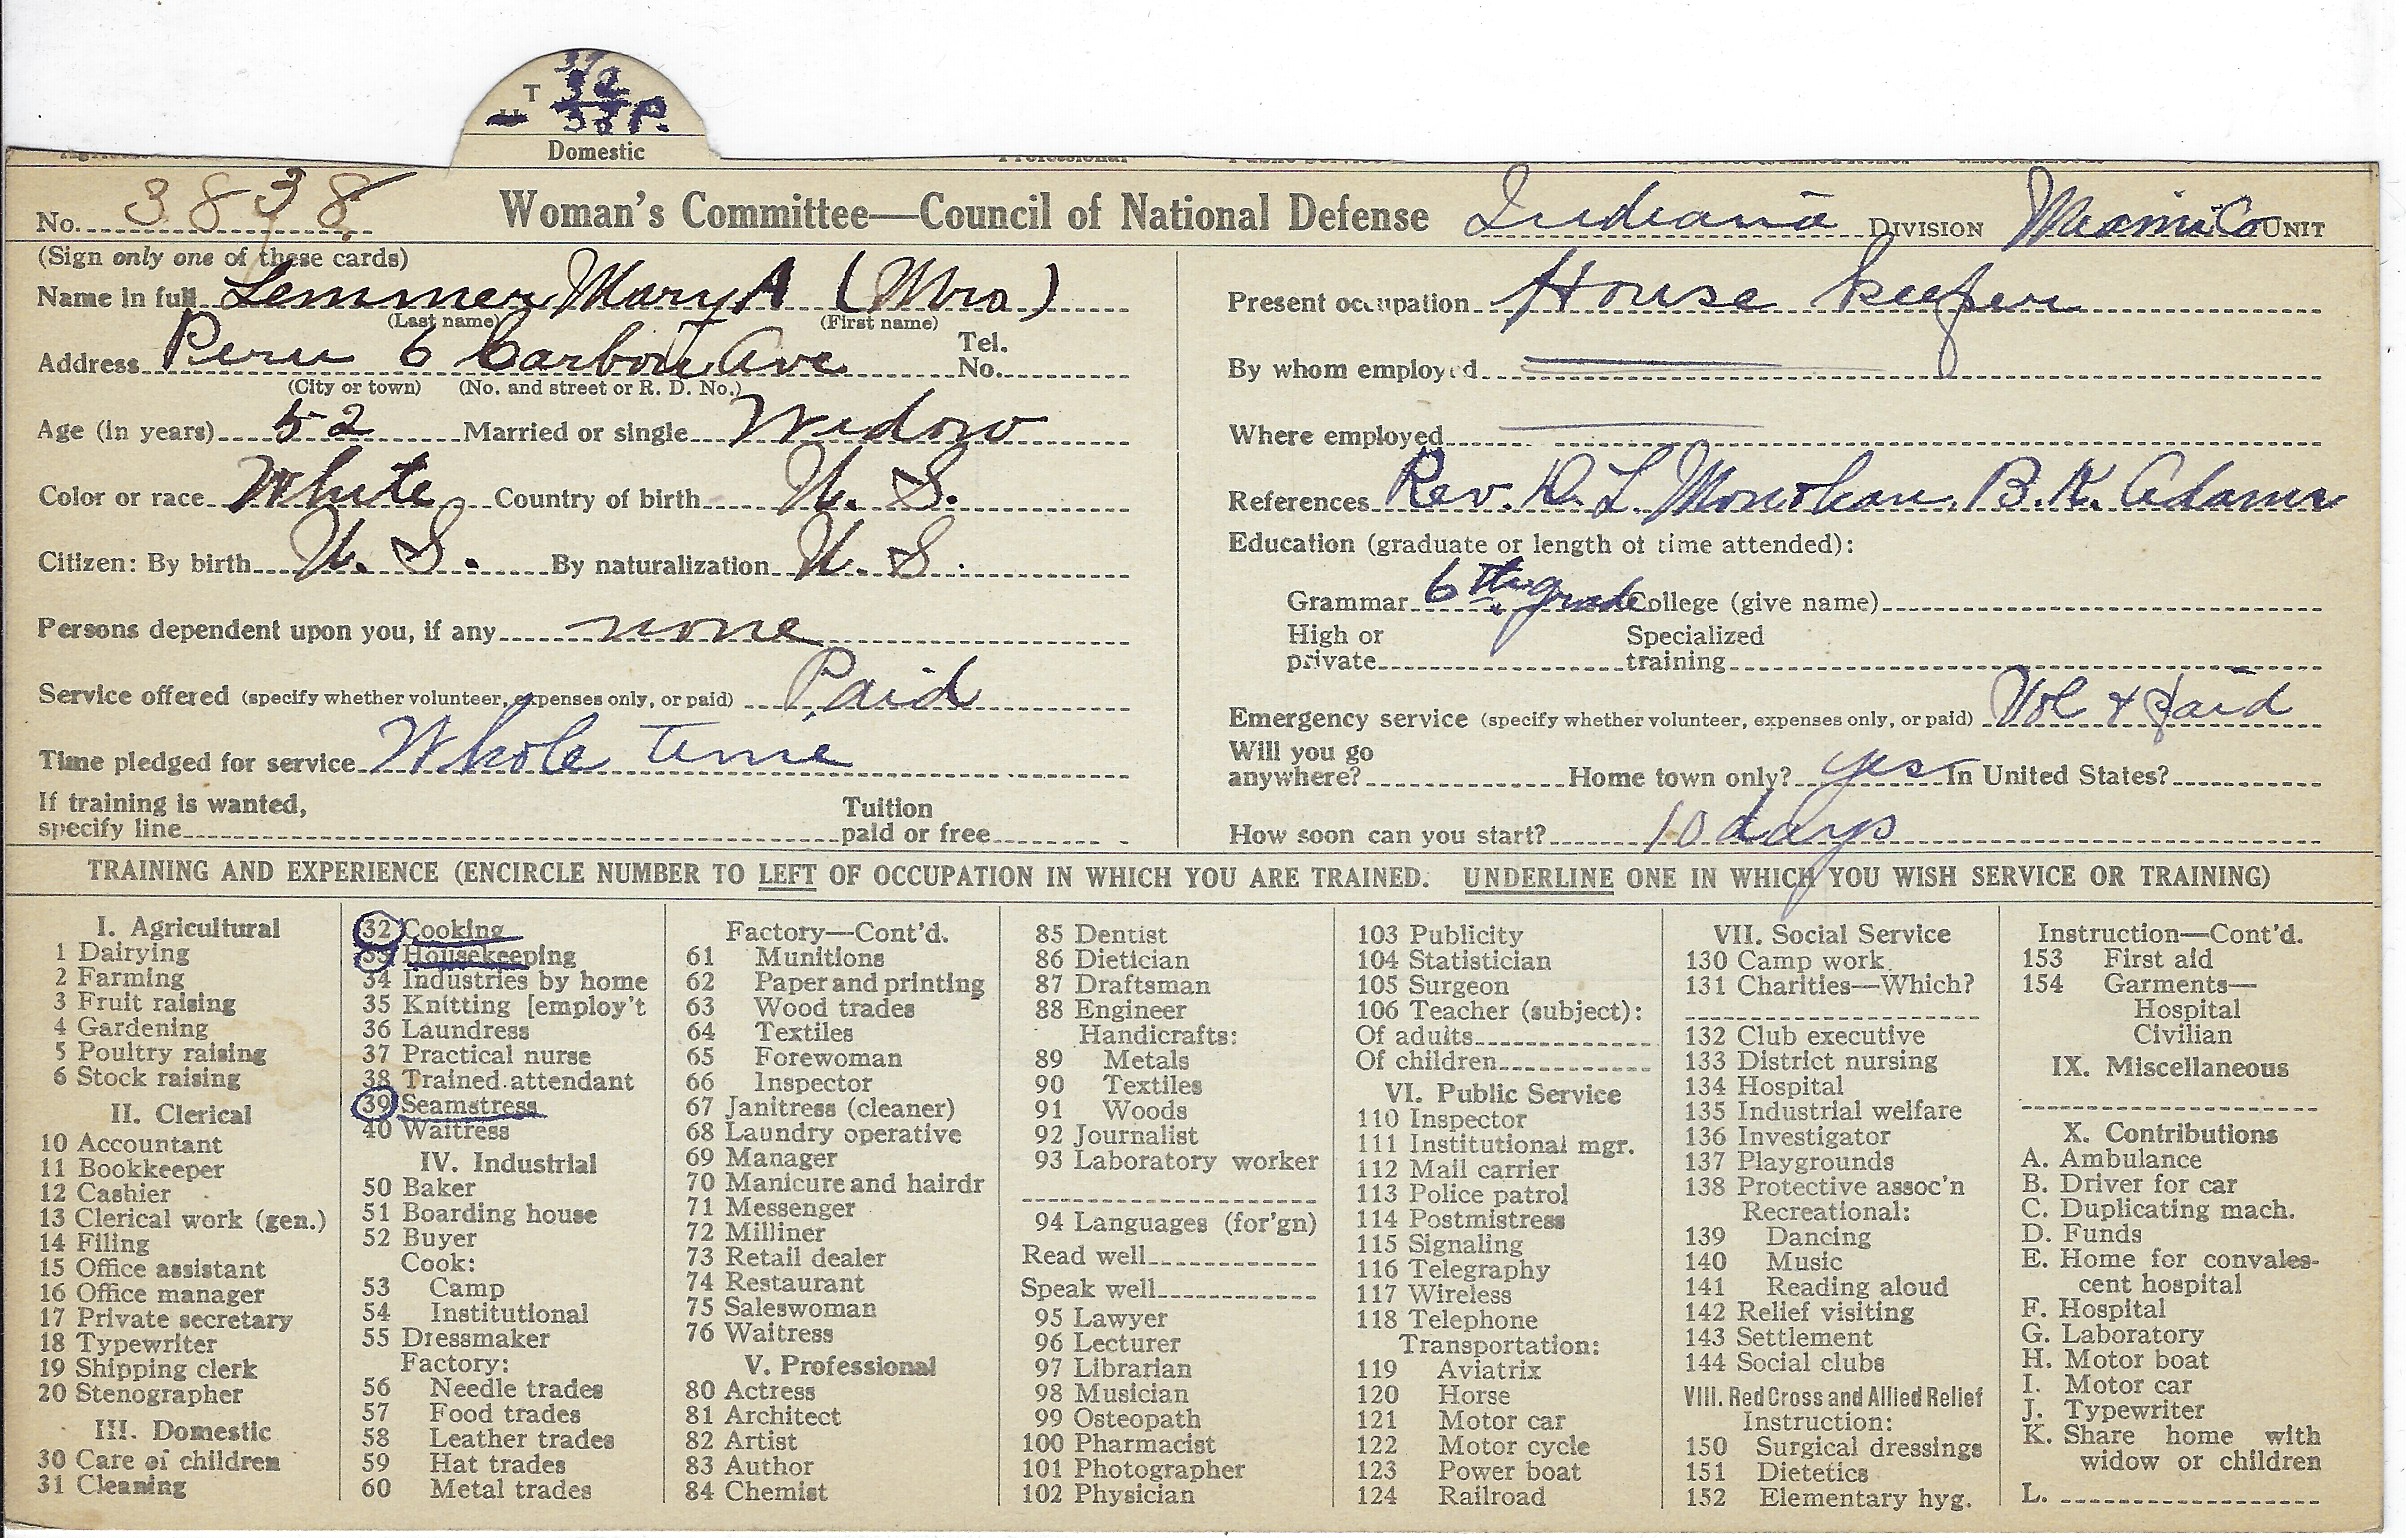 T 32
P.
Domestic
No. 3838
Woman's Committee—Council of National Defense Indiana DIVISION Miami Co UNIT
(Sign only one of these cards)
Name in full Lemmer Mary A (Mrs)
(Last name) (First name)
Address Peru 6 Carbon Ave Tel. No.
(City or town) (No. and street or R. D. No.)
Age (in years) 52 Married or single Widow
Color or race White Country of birth U. S.
Citizen: By birth U. S. By naturalization U. S.
Persons dependent upon you, if any none
Service offered (specify whether volunteer, expenses only, or paid) Paid
Time pledged for service Whole time
If training is wanted,
specify line Tuition paid or free
Present occupation House keeper
By whom employed
Where employed
References Rev. D. L. Monohan, B. K. Adams
Education (graduate or length of time attended):
Grammar 6th grade College (give name)
High or private Specialized training
Emergency service (specify whether volunteer, expenses only, or paid) Vol & paid
Will you go
anywhere? Home town only? yes In United States?
How soon can you start? 10 days
TRAINING AND EXPERIENCE (ENCIRCLE NUMBER TO LEFT OF OCCUPATION IN WHICH YOU ARE TRAINED. UNDERLINE ONE IN WHICH YOU WISH SERVICE OR TRAINING)
I. Agricultural
1 Dairying
2 Farming
3 Fruit raising
4 Gardening
5 Poultry raising
6 Stock raising
II. Clerical
10 Accountant
11 Bookkeeper
12 Cashier
13 Clerical work (gen.)
14 Filing
15 Office assistant
16 Office manager
17 Private secretary
18 Typewriter
19 Shipping clerk
20 Stenographer
III. Domestic
30 Care of children
31 Cleaning
32 Cooking
33 Housekeeping
34 Industries by home
35 Knitting [employ't
36 Laundress
37 Practical nurse
38 Trained attendant
39 Seamstress
40 Waitress
IV. Industrial
50 Baker
51 Boarding house
52 Buyer
Cook:
53 Camp
54 Institutional
55 Dressmaker
Factory:
56 Needle trades
57 Food trades
58 Leather trades
59 Hat trades
60 Metal trades
Factory—Cont'd.
61 Munitions
62 Paper and printing
63 Wood trades
64 Textiles
65 Forewoman
66 Inspector
67 Janitress (cleaner)
68 Laundry operative
69 Manager
70 Manicure and hairdr
71 Messenger
72 Milliner
73 Retail dealer
74 Restaurant
75 Saleswoman
76 Waitress
V. Professional
80 Actress
81 Architect
82 Artist
83 Author
84 Chemist
85 Dentist
86 Dietician
87 Draftsman
88 Engineer
Handicrafts:
89 Metals
90 Textiles
91 Woods
92 Journalist
93 Laboratory worker
94 Languages (for'gn)
Read well
Speak well
95 Lawyer
96 Lecturer
97 Librarian
98 Musician
99 Osteopath
100 Pharmacist
101 Photographer
102 Physician
103 Publicity
104 Statistician
105 Surgeon
106 Teacher (subject):
Of adults
Of children
VI. Public Service
110 Inspector
111 Institutional mgr.
112 Mail carrier
113 Police patrol
114 Postmistress
115 Signaling
116 Telegraphy
117 Wireless
118 Telephone
Transportation:
119 Aviatrix
120 Horse
121 Motor car
122 Motor cycle
123 Power boat
124 Railroad
VII. Social Service
130 Camp work
131 Charities—Which?
132 Club executive
133 District nursing
134 Hospital
135 Industrial welfare
136 Investigator
137 Playgrounds
138 Protective assoc'n
Recreational:
139 Dancing
140 Music
141 Reading aloud
142 Relief visiting
143 Settlement
144 Social clubs
VIII. Red Cross and Allied Relief
Instruction:
150 Surgical dressings
151 Dietetics
152 Elementary hyg.
Instruction—Cont'd.
153 First aid
154 Garments—
Hospital
Civilian
IX. Miscellaneous
X. Contributions
A. Ambulance
B. Driver for car
C. Duplicating mach.
D. Funds
E. Home for convales-
cent hospital
F. Hospital
G. Laboratory
H. Motor boat
I. Motor car
J. Typewriter
K. Share home with
widow or children
L.